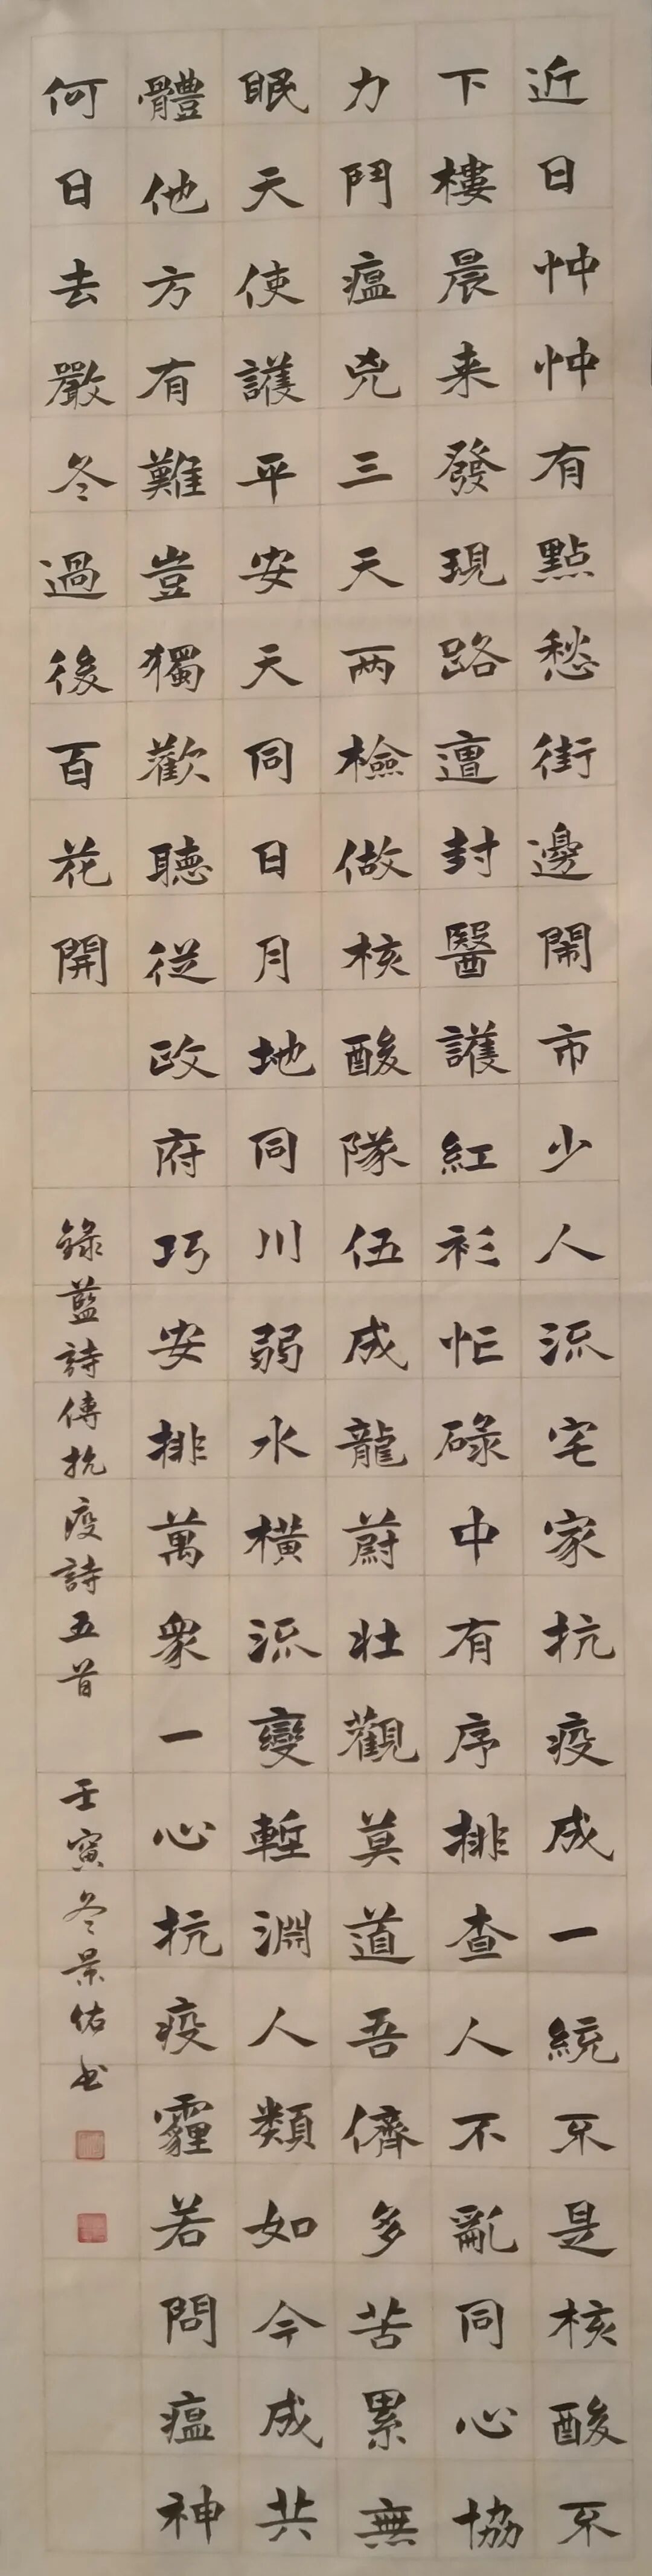 近日忡忡有點愁街邊鬧市少人流宅家抗疫成一統不是核酸不
下樓晨来發現路遭封醫護紅衫忙碌中有序排查人不亂同心協
力鬥瘟兇三天两檢做核酸隊伍成龍蔚壯觀莫道吾儕多苦累無
眠天使護平安天同日月地同川弱水橫流變塹淵人類如今成共
體他方有難豈獨歡聽從政府巧安排萬衆一心抗疫霾若問瘟神
何日去嚴冬過後百花開
錄藍詩傳抗疫詩五首 壬寅冬景佑书